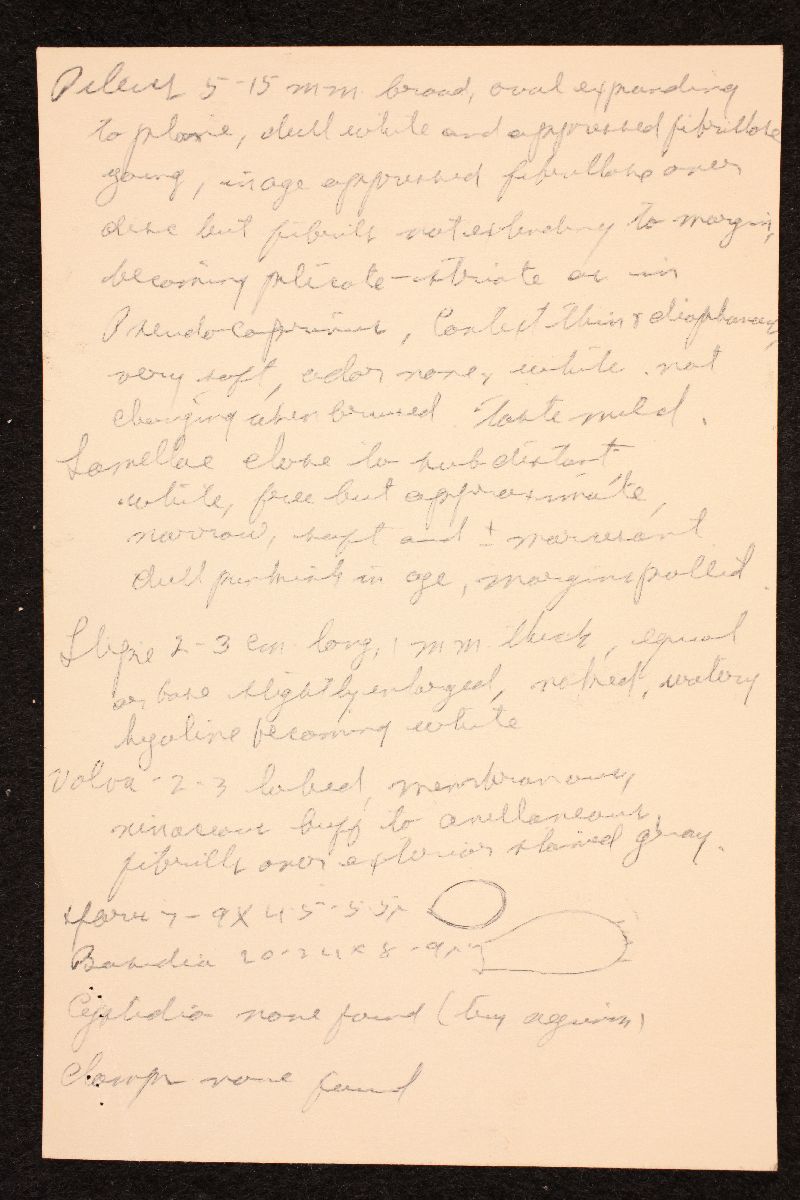 Pileus 5-15 mm broad, oval expanding
to plane, dull white and appressed fibrillose
young, in age appressed fibrillose over
disc but fibrils not extending to margin,
becoming plicate-striate as in
Pseudocoprinus, Context thin & diaphanous,
very soft, odor none, white not
changing when bruised taste mild.
Lamellae close to subdistant
white, free but approximate,
narrow, soft and ±
dull pinkish in age, margins pallid
Stipe 2-3 cm long, 1 mm thick, equal
or base slightly enlarged, naked, watery
hyaline becoming white
Volva - 2-3 lobed, membranous,
vinaceous buff to avellaneous,
fibrills over exterior stained gray.
spores 7-9 X 4.5-5.5μ
Basidia 20-24 x 8-9μ
Cystidia none found (try again)
Clamps none found